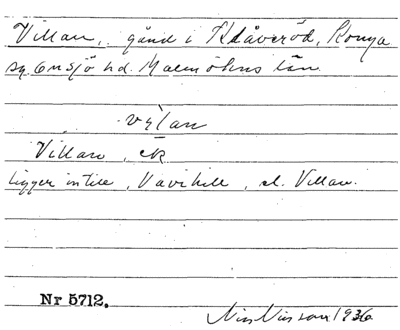 Villan, gård i Klåveröd, Konga
sn. Onsjö hd. Malmöhus län
vìlan
Villan, ek
ligger intill, Vavihill, el. Villan.
Nr 5712.
Nils Nilsson 1936